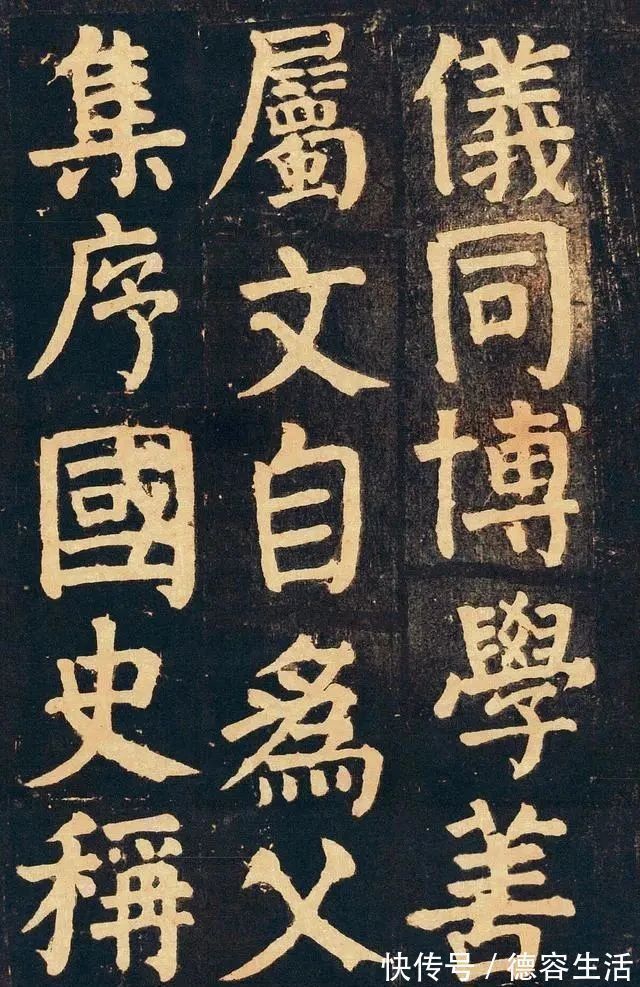 儀同博學善
屬文自爲父
集序國史稱
快传号/德容生活